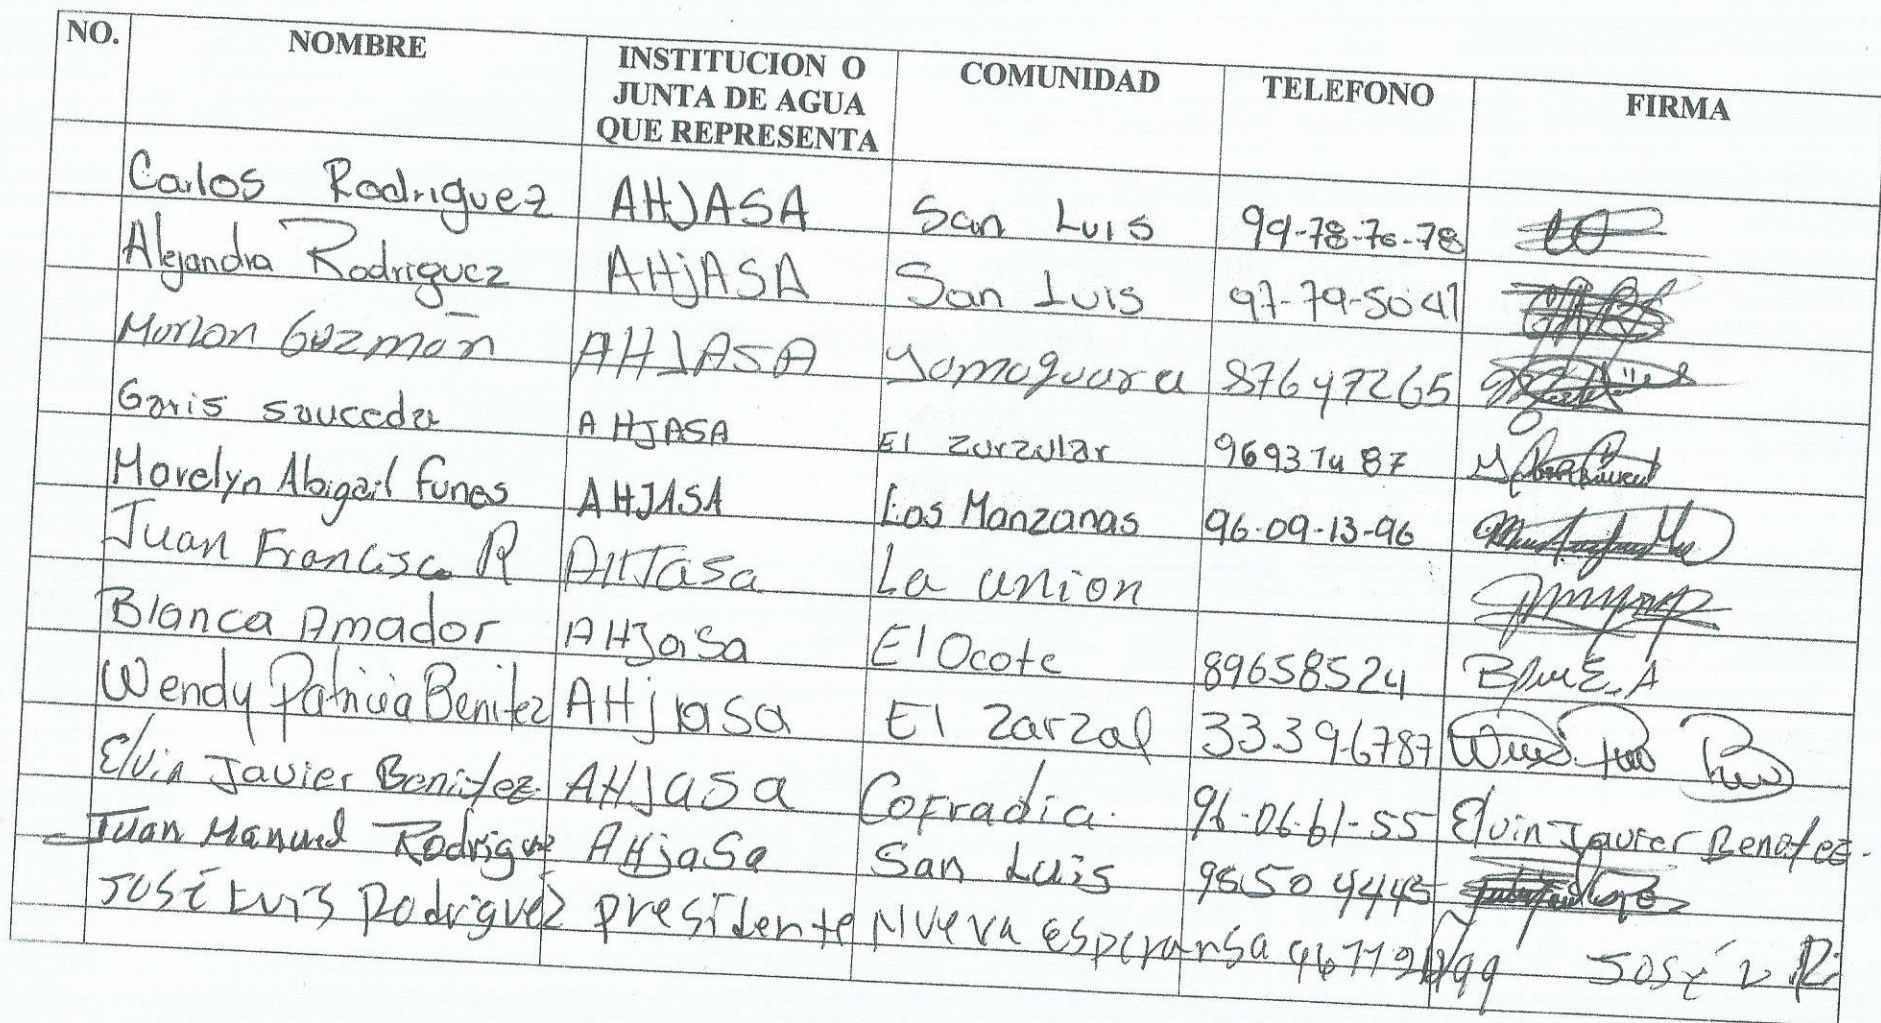 NO. NOMBRE INSTITUCION O JUNTA DE AGUA QUE REPRESENTA COMUNIDAD TELEFONO FIRMA
Carlos Rodriguez AHJASA San Luis 99-78-70-78
Alejandra Rodriguez AHjASA San Luis 97-79-5041
Marlon Guzmán AHJASA Yamaguara 87647265
Garis sauceda AHJASA El zarzular
Marelyn Abigail Funes AHJASA Las Manzanas 96-09-13-96
Juan Francisco R AHJasa La union
Blanca Amador AHJasa El Ocote 89658524
Wendy Patricia Benitez AHjasa El zarzal 33396787
Elvin Javier Benitez AHJasa Cofradia. 96-06-61-55 Elvin Javier Benitez.
Juan Manuel Rodriguez AHjasa San Luis
José Luis Rodriguez presidente Nueva esperansa José